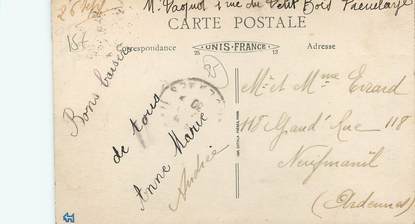 Mr Paquot 1 rue du Petit Bois
CARTE POSTALE
Correspondance
UNIS-FRANCE
Adresse
Bons baisers
de tous
Anne Marie
Andrée
Mr et Mme Evrard
118 Grand' Rue 118
Neufmanil
(Ardennes)